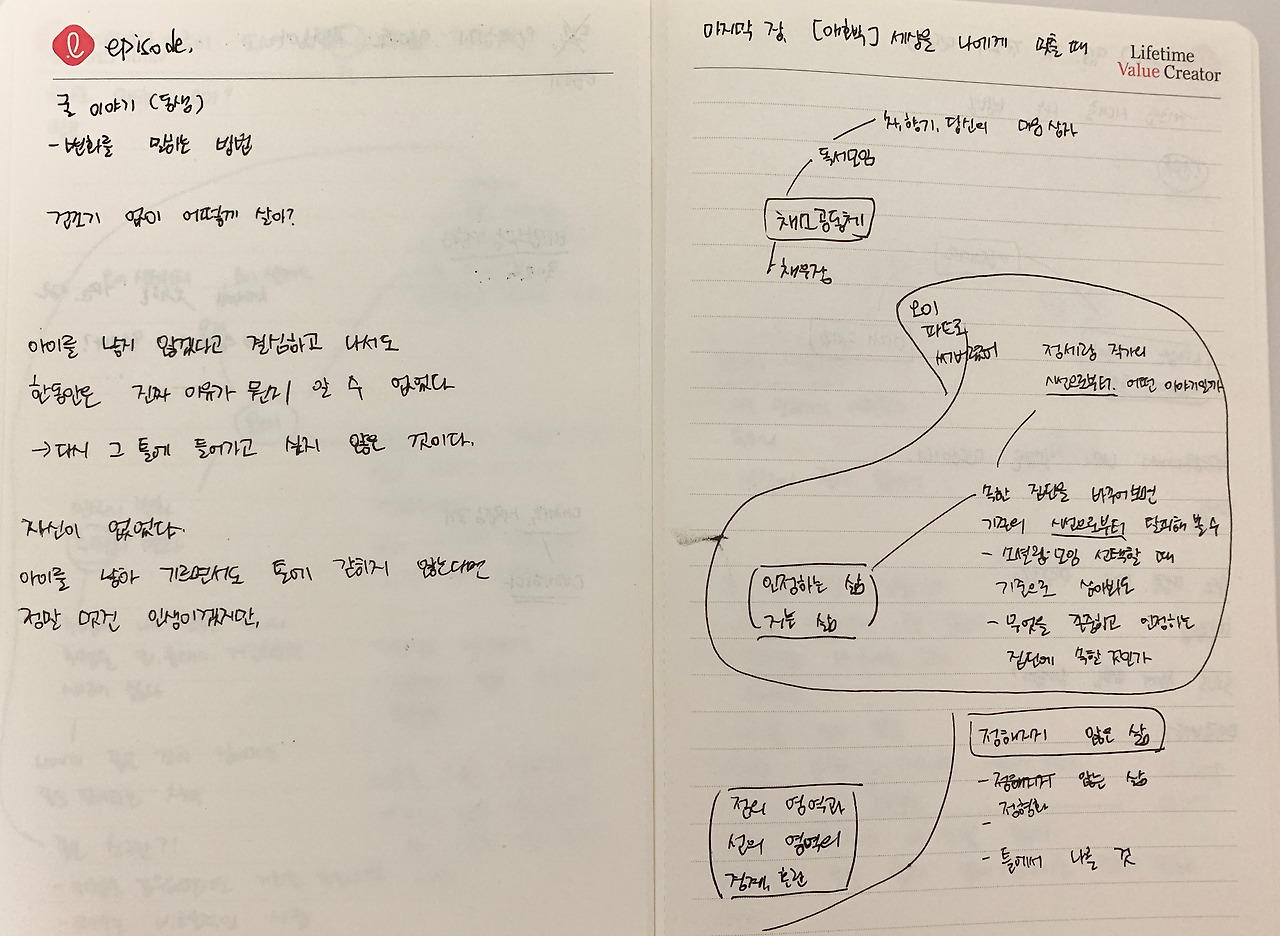 episode.
굴 이야기 (동생)
- 변화를 말하는 방법
건조기 없이 어떻게 살아?
아이를 낳지 않겠다고 결심하고 나서도
한동안은 진짜 이유가 뭔지 알 수 없었다
→ 다시 그 틀에 들어가고 싶지 않은 것이다.
자신이 없었다.
아이를 낳아 기르면서도 틀에 갇히지 않는다면
정말 멋건 인생이겠지만,
마지막 장. [애호박] 세상을 나에게 맞출 때
Lifetime
Value Creator
차, 향기, 당신의 마음 상자
독서모임
채모공동체
채무장
오이
파프로
정세랑 작가의
시선으로부터. 어떤 이야기일까
속한 집단을 바꾸어보면
기존의 시선으로부터 탈피해 볼 수
- 모임 선택할 때
기준으로 삼아봐도
- 무엇을 존중하고 인정하는
집단에 속할 것인가
인정하는 삶
저는 삶
정해지지 않은 삶
- 정해지지 않는 삶
- 정형화
-
- 틀에서 나를 것
점의 영역과
선의 영역의
경계, 혼란